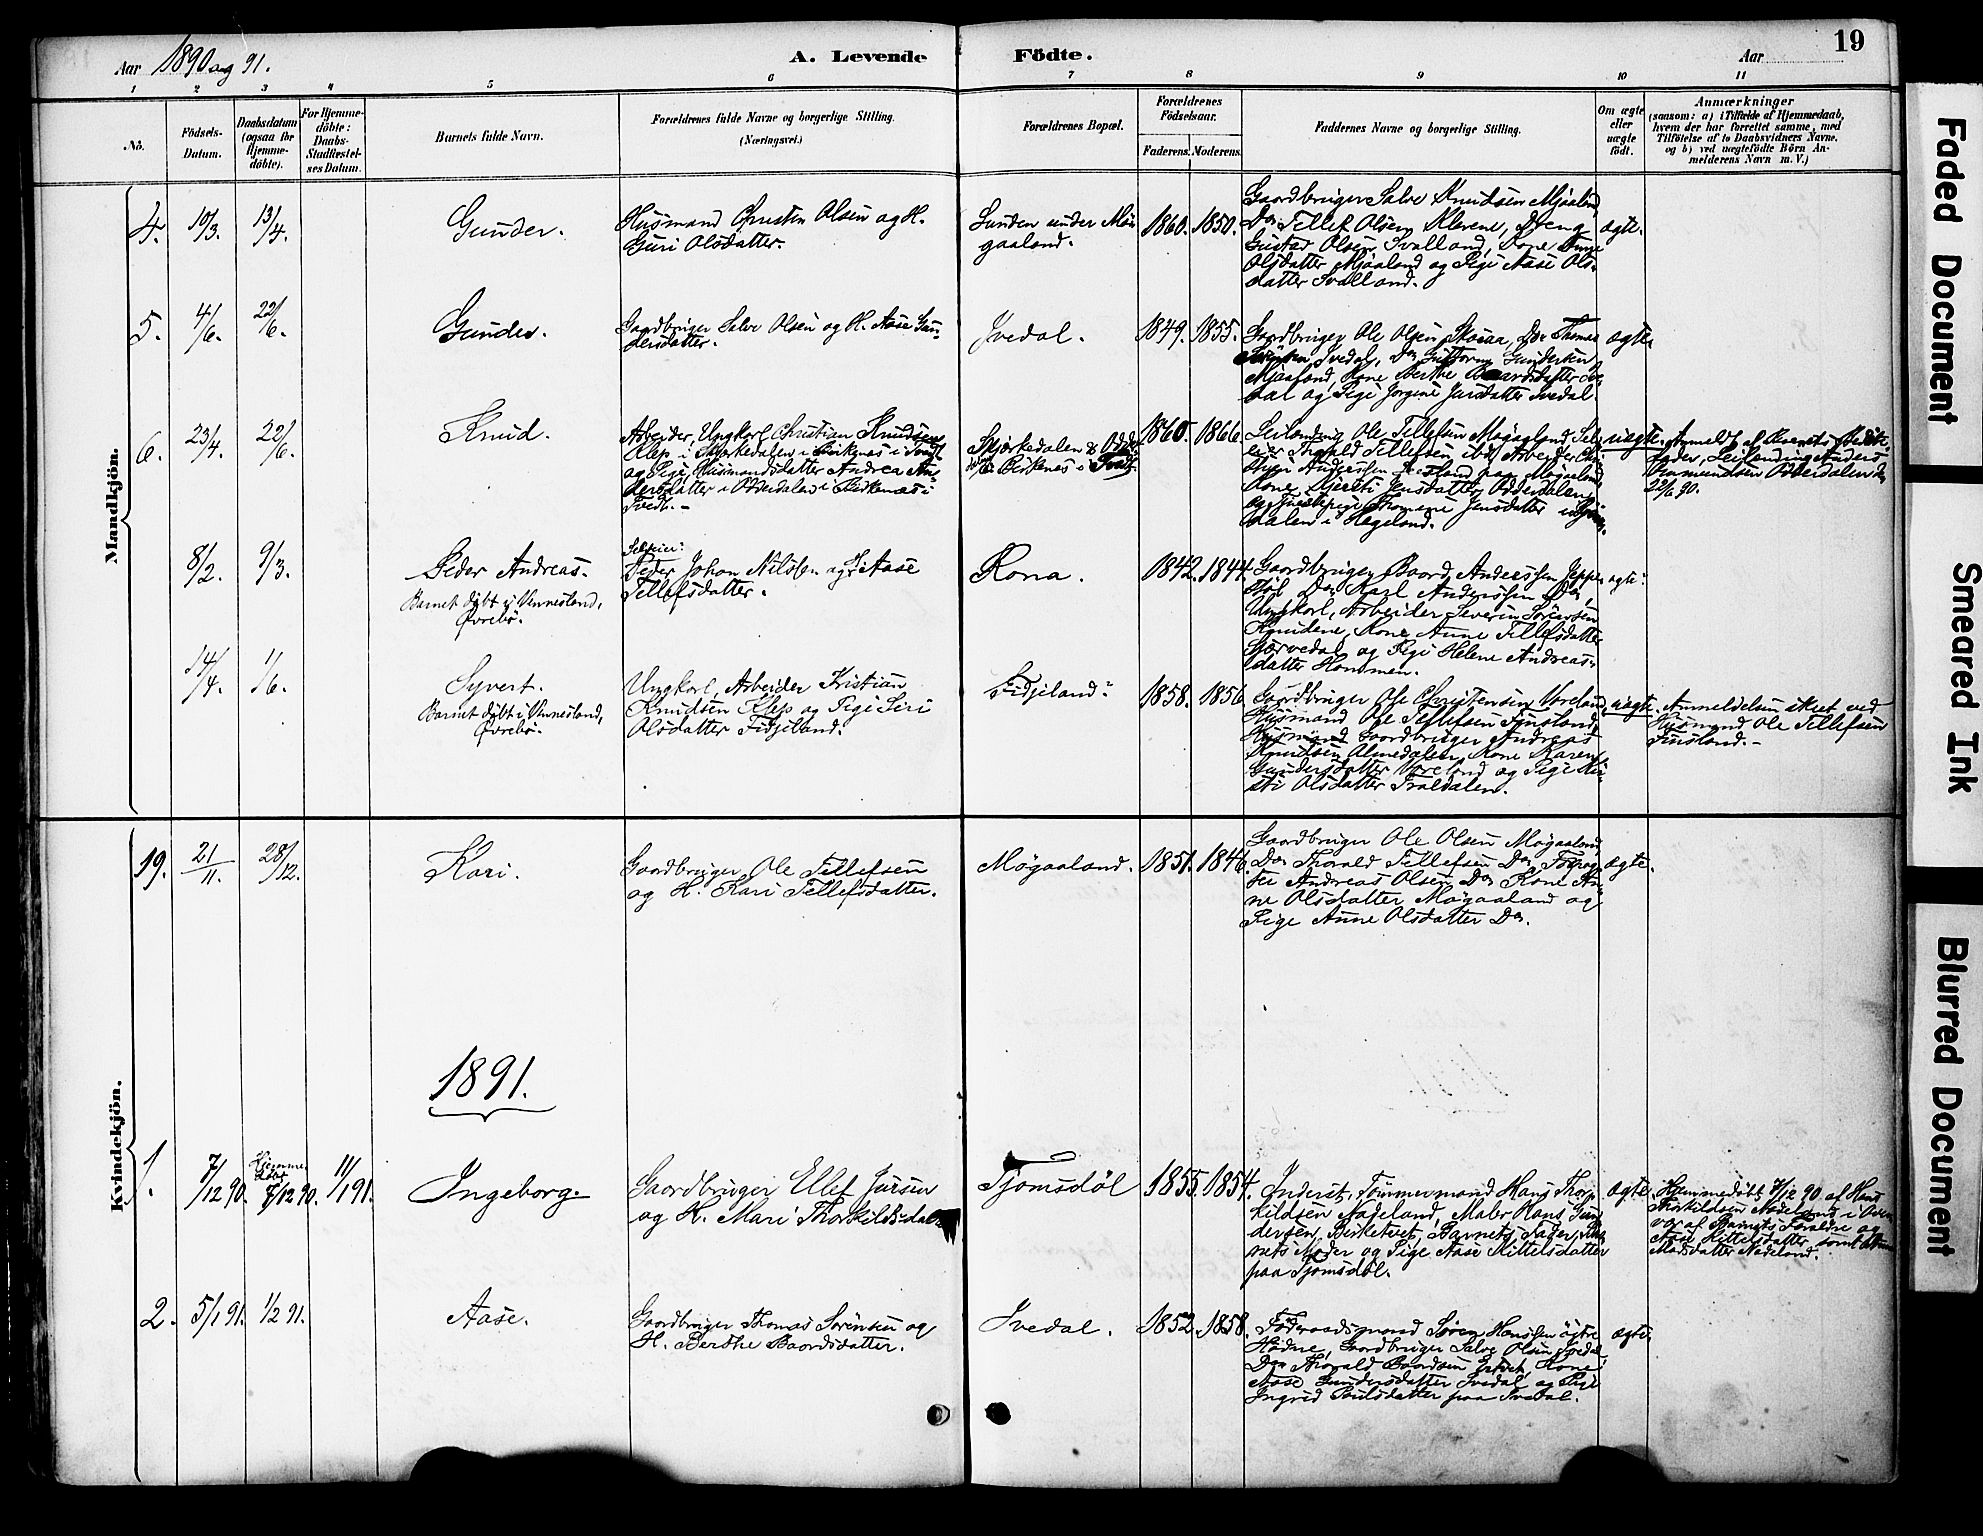 19
Aar 1890 og 91.
A. Levende Födte.
Aar
1 2 3 4 5 6 7 8 9 10 11
No.
Födsels-
Datum.
Daabsdatum
(ogsaa for
Hjemme-
döbte).
For Hjemme-
döbte:
Daabs-
Stadfæstel-
ses Datum.
Barnets fulde Navn.
Forældrenes fulde Navne og borgerlige Stilling.
(Næringsvei.)
Forældrenes Bopæl.
Forældrenes
Födselsaar.
Faderens.
Moderens.
Faddernes Navne og borgerlige Stilling.
Om ægte
eller
uægte
födt.
Anmærkninger
(saasom: a) i Tilfælde af Hjemmedaab,
hvem der har forrettet samme, med
Tilföielse af to Daabsvidners Navne,
og b) ved uægtefödte Börn An-
melderens Navn m. V.)
Mandkjön.
4.
10/3.
13/4.
Gunder.
Husmand Christen Olsen og H.
Guri Olsdatter.
Lunden under Møu
gaaland.
1860.
1850.
Gaardbruger Salve Knudsen Mjaaland
Do Tellef Olsen Klevene, Dreng
Gustav Olsen Svalland, Kone Anne
Olsdatter Mjaaland og Pige Aase Ols-
datter Svalland.
ægte.
5.
4/6.
22/6.
Gunder.
Gaardbruger Salve Olsen og H. Aase Gun-
dersdatter.
Ivedal.
1849.
1855.
Gaardbruger Ole Olsen Skaiar, Do Thomas
Sørensen Ivedal, Do Guttorm Gundersen
Mjaaland, Kone Berthe Baardsdatter Ive-
dal og Pige Jorgine Jensdatter Ivedal.
ægte.
6.
23/4.
22/6.
Knud.
Arbeider, Ungkarl Christian Knudsen
Klep i Skjerkedalen i Birkenes i Tvedt
og Pige Husmandsdatter Andrea An-
dersdatter i Odderdalen i Birkenes i
Tvedt.
Skjerkedalen & Odder-
i Birkenes i Tvedt.
1860.
1866.
Leilænding Ole Tellefsen Møgaaland, Sel-
eier Thorald Tellefsen ibd, Arbeider
Anderssen paa Møgaaland,
Kone Kjersti Jensdatter Odderdalen
og Tjenestepige Thomine Jensdatter
dalen i Hægeland.
uægte.
Anmeldt af Barnets Bedste-
fader, Leilænding Anders
Aanundsen Odderdalen
22/6 90.
8/2.
9/3.
Peder Andreas.
Barnet döbt i Vennesland,
Øvrebö.
Selveier:
Peder Johan Nilsen og H. Aase
Tellefsdatter.
Rona.
1842.
1844.
Gaardbruger Baard Anderssen Jeppe-
stöl, Do Karl Anderssen Do,
Ungkarl, Arbeider Severin Sörensen
Knudene, Kone Anne Tellefsdatter
og Pige Helene Andreas-
datter Hommen.
ægte.
14/4.
1/6.
Syvert.
Barnet döbt i Vennesland,
Øvrebö.
Ungkarl, Arbeider Kristian
Knudsen Klep og Pige Siri
Olsdatter Fidjeland.
Fidjeland.
1858.
1856.
Gaardbruger Ole Christensen Voreland,
Husmand Ole Tellefsen Finsland,
Husmand Gaardbruger Andreas
Knudsen Almedalen, Kone Karen
Gundersdatter Voreland og Pige Kir-
sti Olsdatter Traldalen.
uægte.
Anmeldelsen skeet ved
Husmand Ole Tellefsen
Finsland.
Kvindekjön.
19.
21/11.
28/12.
Kari.
Gaardbruger Ole Tellefsen
og H. Kari Tellefsdatter.
Møgaaland.
1851.
1846.
Gaardbruger Ole Olsen Møgaaland
Do Thorald Tellefsen Do
Andreas Olsen Do Kone An-
ne Olsdatter Møgaaland og
Pige Anne Olsdatter Do.
ægte.
1891.
1.
7/12 90.
Hjemme-
döbt
7/12 90.
11/1 91.
Ingeborg.
Gaardbruger Ellef Jensen
og H. Mari Thorkildsdat
Tjomsdöl
1855.
1854.
Inderst, Tömmermand Hans Thor-
kildsen Nadeland, Maler Hans Gun-
dersen, Birketveit, Barnets Fader, Bar-
nets Moder og Pige Aase Kittelsdatter
paa Tjomsdöl.
ægte.
Hjemmedöbt 7/12 90 af Hans
Thorkildsen Nadeland i Over-
vær af Barnets Forældre og
Aase Kittelsdatter samt
Madsdatter Nadeland.
2.
5/1 91.
1/2 91.
Aase.
Gaardbruger Thomas Sörensen og
H. Berthe Baardsdatter.
Ivedal.
1852.
1858.
Föderaadsmand Sören Hanssen östre
Hodne, Gaardbruger Salve Olsen Ivedal,
Do Thorald Baardsen Kone
Aase Gundersdatter Ivedal og Pige
Ingrid Paulsdatter paa Ivedal.
ægte.
Faded Document
Smeared Ink
Blurred Document